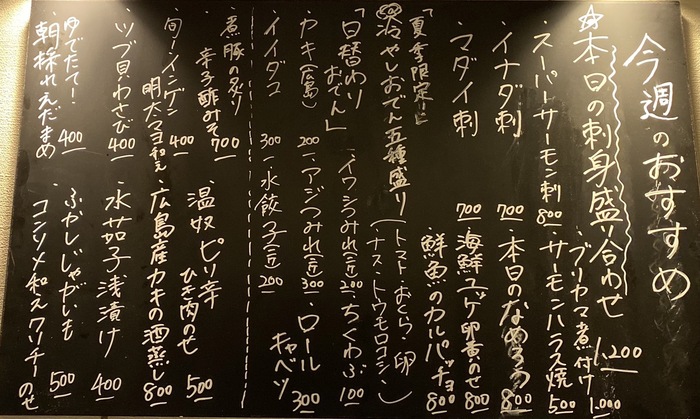 今週のおすすめ
☆本日の刺身盛り合わせ 1,200
・ブリカマ煮付け 1,000
・スーパーサーモン刺 800
・サーモンハラス焼 500
・イナダ刺 700
・本日のなめろう 800
・マダイ刺 700
・海鮮ユッケ卵黄のせ 800
・鮮魚のカルパッチョ 800
「夏季限定」
冷やしおでん五種盛り(トマト・おくら・卵
ナス・トウモロコシ)
「日替わり
おでん」
・イワシつみれ(二近) 200
・ちくわぶ 100
・カキ(広島) 200
・アジつみれ(二近) 300
・ロール
キャベツ 300
・イイダコ 300
・水餃子(二近) 200
・煮豚の炙り
辛子酢みそ 700
・温奴ピリ辛
ひき肉のせ 500
・旬!インゲン
明太マヨ和え 400
・広島産カキの酒蒸し 800
・ツブ貝わさび 400
・水茄子浅漬け 400
・ゆでたて!
朝採れえだまめ 400
・ふかしじゃがいも
コンソメ和えクリチーのせ 500